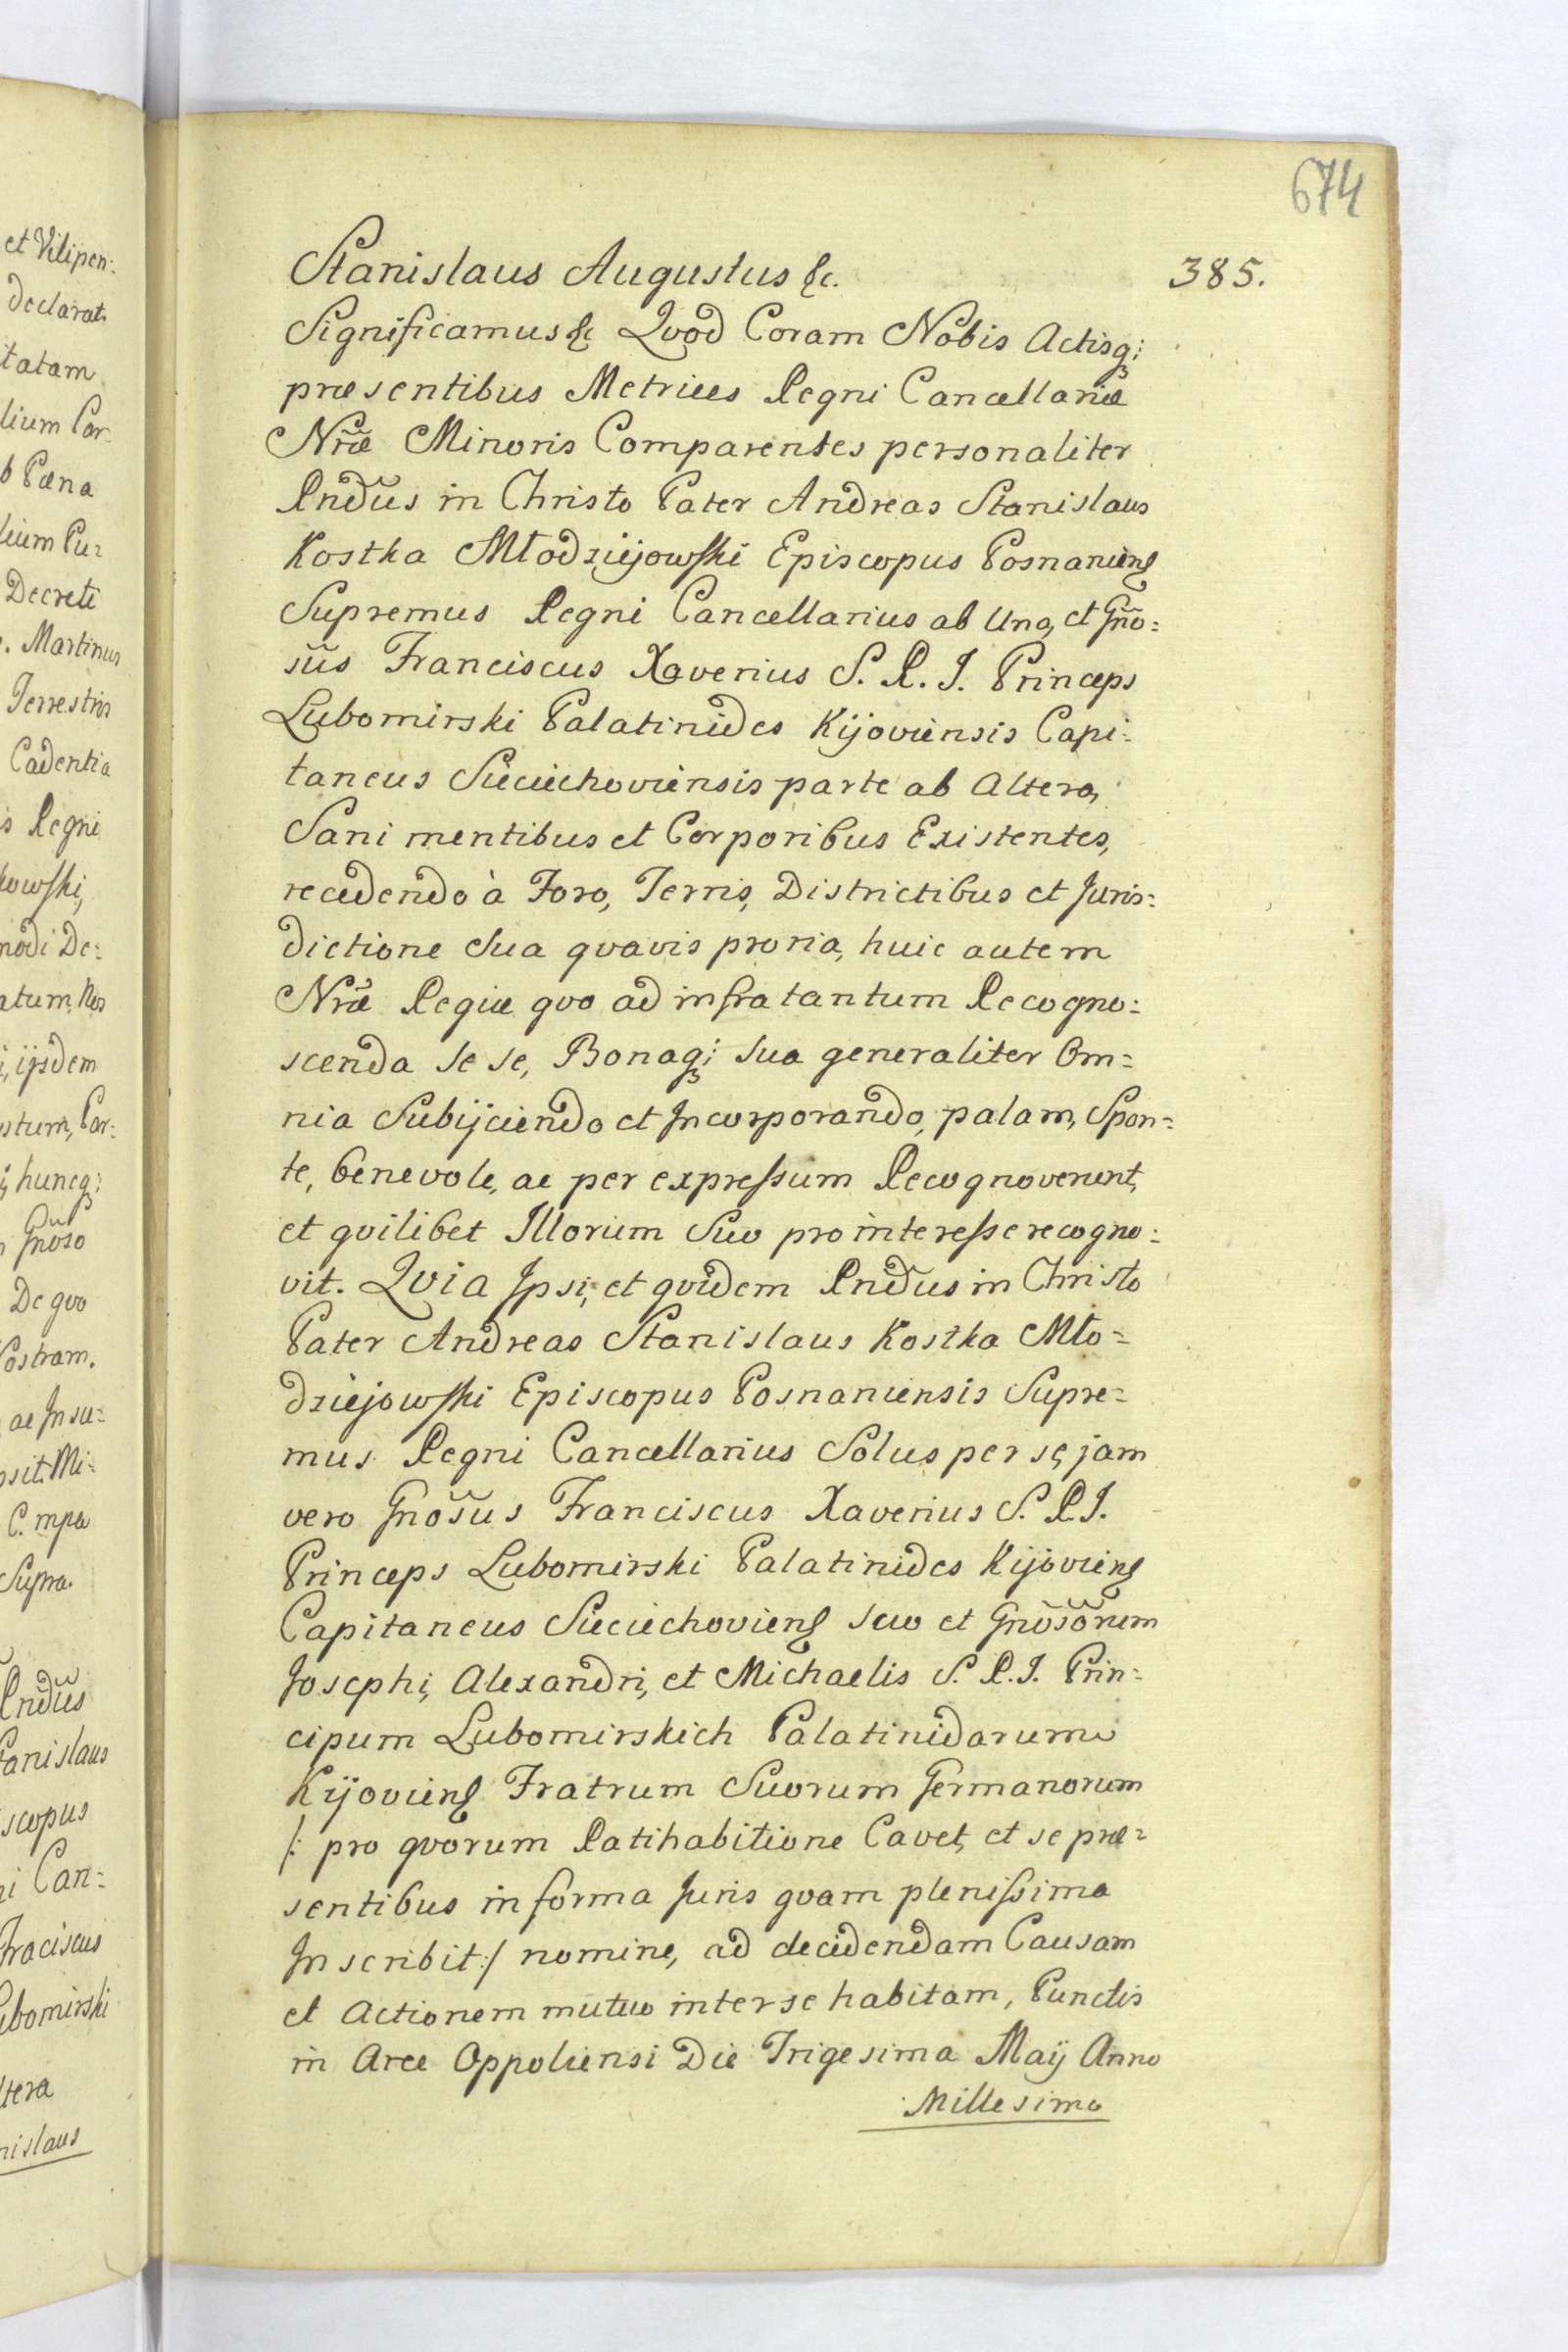 et Vilipen:
declarat.
tatam
lium Cor
b Pæna
lium Pu:
Decreti
. Martinus
Terrestris
Cadentia
s Regni
kowski,
modi De:
atum, Nos
i, ijsdem
stum, Par:
huncq;
Gnõso
De quo
Nostram.
ac Insu:
osit. Mi:
C. mpa
Supra.
Rndus
Stanislaus
scopus
i Can:
Fraciscus
ubomirski
ltera
nislaus
674
385.
Stanislaus Augustus &c.
Significamus &c Qvod Coram Nobis Actisq;
præsentibus Metrices Regni Cancellariæ
Nræ Minoris Comparentes personaliter
Rndus in Christo Pater Andreas Stanislaus
Kostka Młodziejowski Episcopus Posnaniens
Supremus Regni Cancellarius ab Una, et Gño:
sus Franciscus Xaverius S. R. I. Princeps
Lubomirski Palatinides Kijoviensis Capi:
taneus Sieciechoviensis parte ab Altera,
Sani mentibus et Corporibus Existentes,
recedendo à Foro, Terris, Districtibus et Juris:
dictione Sua qvavis proria, huic autem
Nræ Regiæ qvo ad infra tantum Recogno:
scenda se se, Bonaq; sua generaliter Om=
nia Subijciendo et Incorporando, palam, Spon=
te, benevole, ac per expressum Recognoverunt,
et qvilibet Illorum Suo pro interesse recogno:
vit. Qvia Ipsi, et qvidem Rndus in Christo
Pater Andreas Stanislaus Kostka Mło=
dziejowski Episcopus Posnaniensis Supre=
mus Regni Cancellarius Solus per se, jam
vero Gnõsus Franciscus Xaverius S. R. I.
Princeps Lubomirski Palatinides Kijoviens
Capitaneus Sieciechoviens suo et Gnõsõrum
Josephi, Alexandri, et Michaelis S. R. I. Prin:
cipum Lubomirskich Palatinidarum
Kijoviens Fratrum Suorum Germanorum
/: pro qvorum Ratihabitione Cavet, et se præ=
sentibus in forma Juris qvam plenissima
Inscribit :/ nomine, ad decidendam Causam
et Actionem mutuo inter se habitam, Punctis
in Arce Oppoliensi Die Trigesima Maij Anno
Millesimo